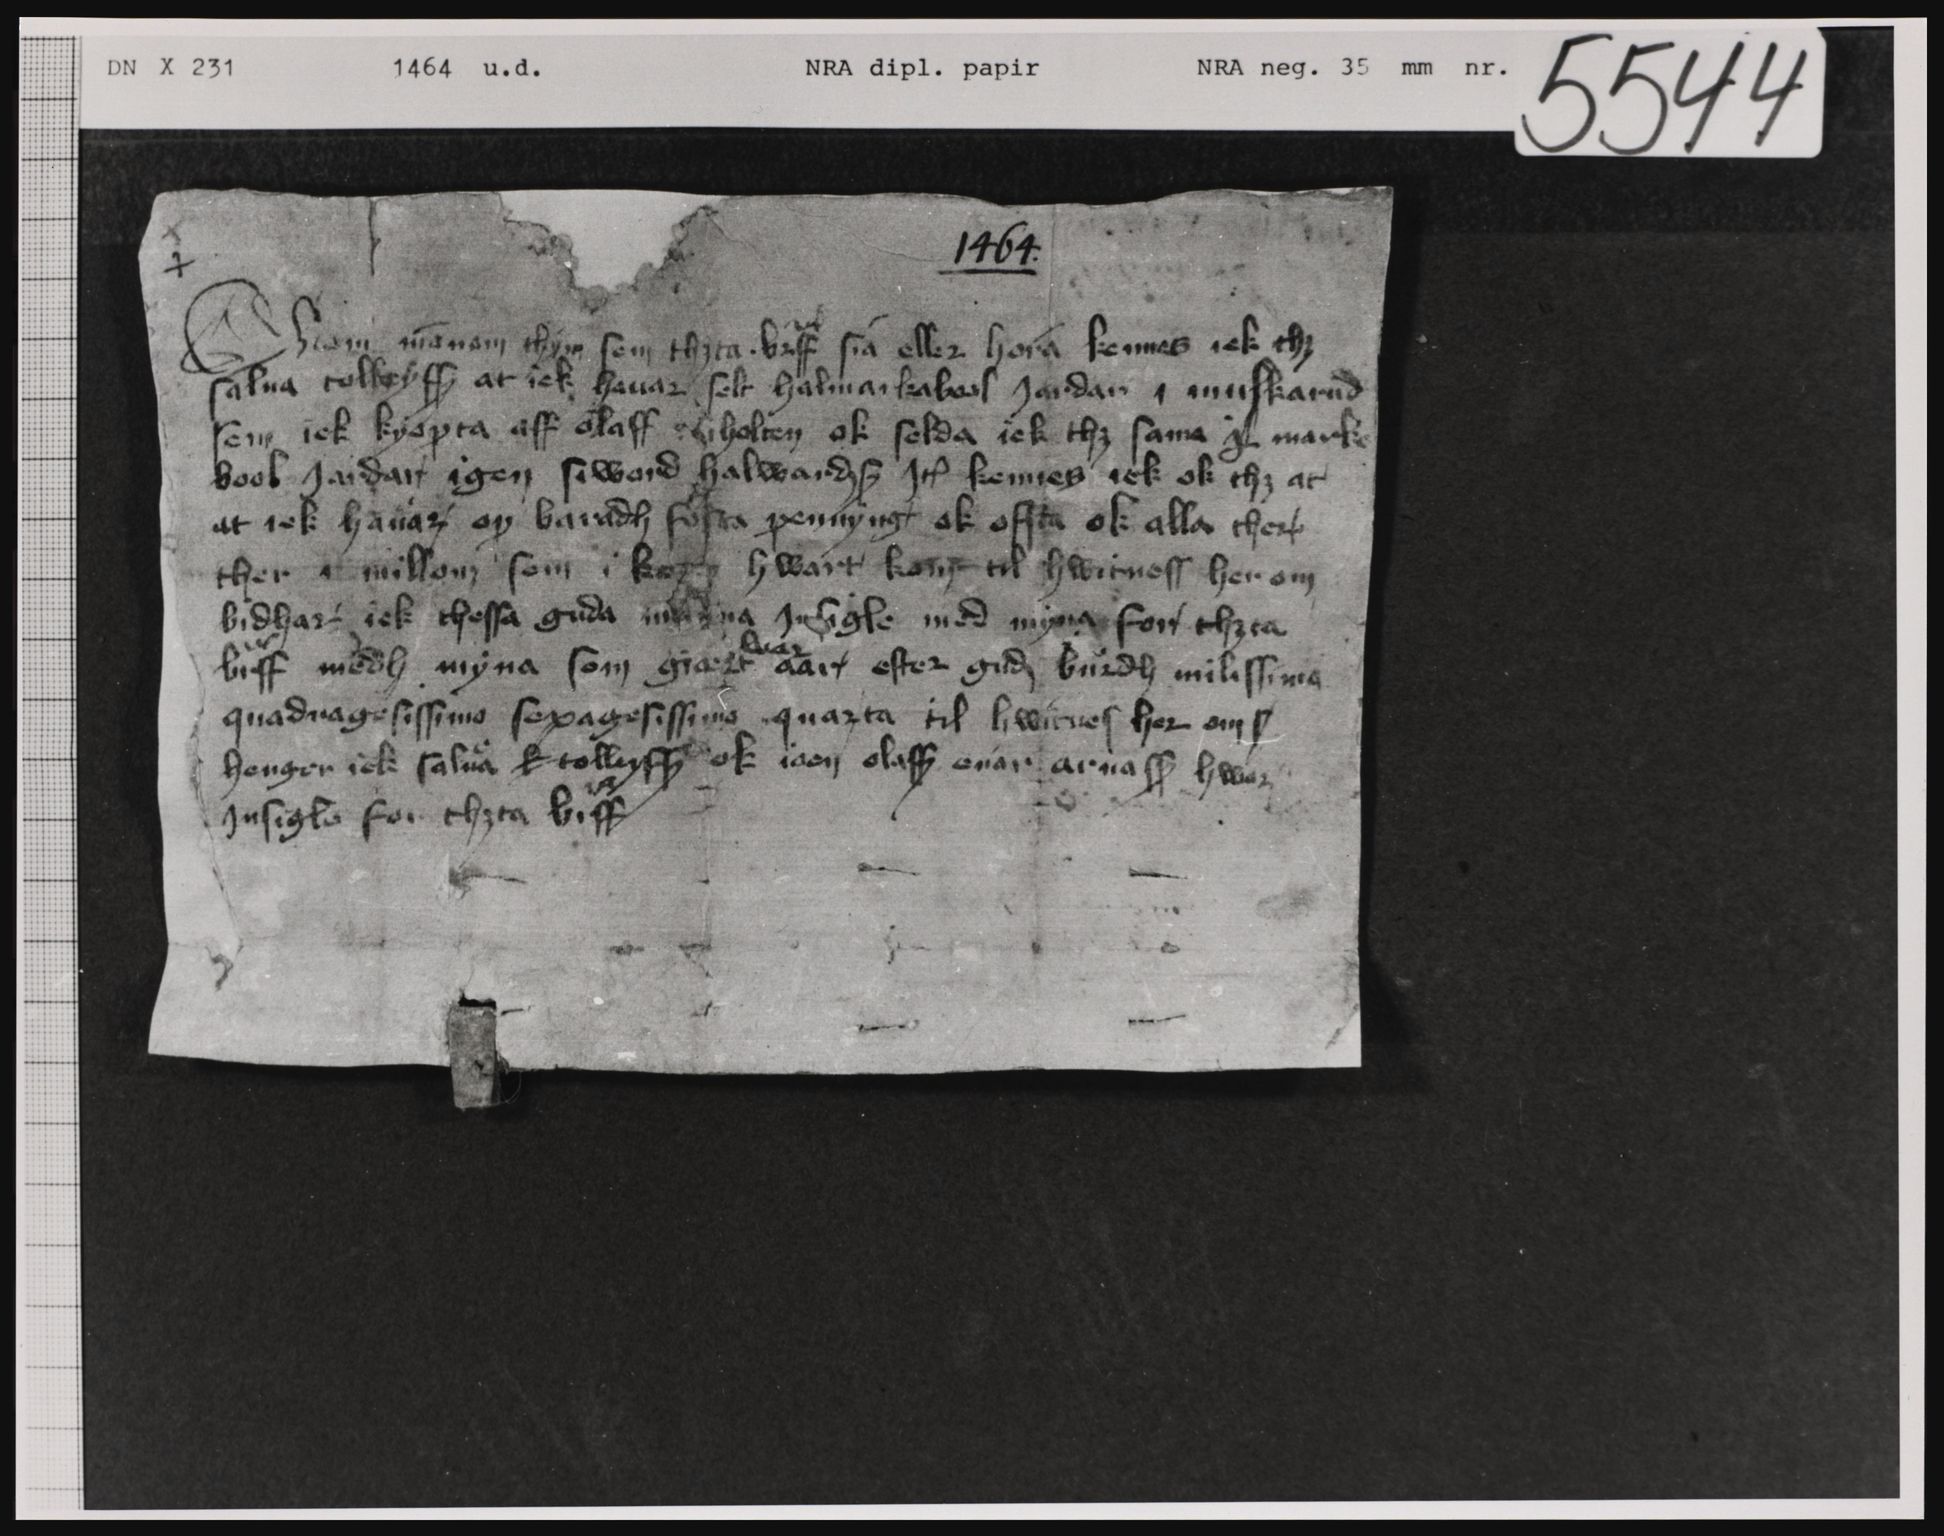 DN X 231 1464 u.d. NRA dipl. papir NRA neg. 35 mm nr. 5544
1464.
manom thym sem thzta breff sia eller hora kennes iek thz
salua tolleyffs at iek hauar selt halmarkabool Jardar i muskarud
sem iek kyøpta aff olaff holten ok selda iek thz sama marke
bool Jardar igen siword halwardzs Jt kennes iek ok thz at
at iek hauar op baradh føsta pennyng ok øfsta ok alla ther
ther i millom som i hwart kom til hwitness her om
bidhar iek thessa guda Jnsigle med myna for thzta
breff medh myna som giort war aar efter gudz burdh milissimo
quadragesissimo sexagesissimo quarta til hwitnes her om
henger iek salua tolleyffs ok ioen olaffs enar arnass hwar
Jnsigle for thzta breff